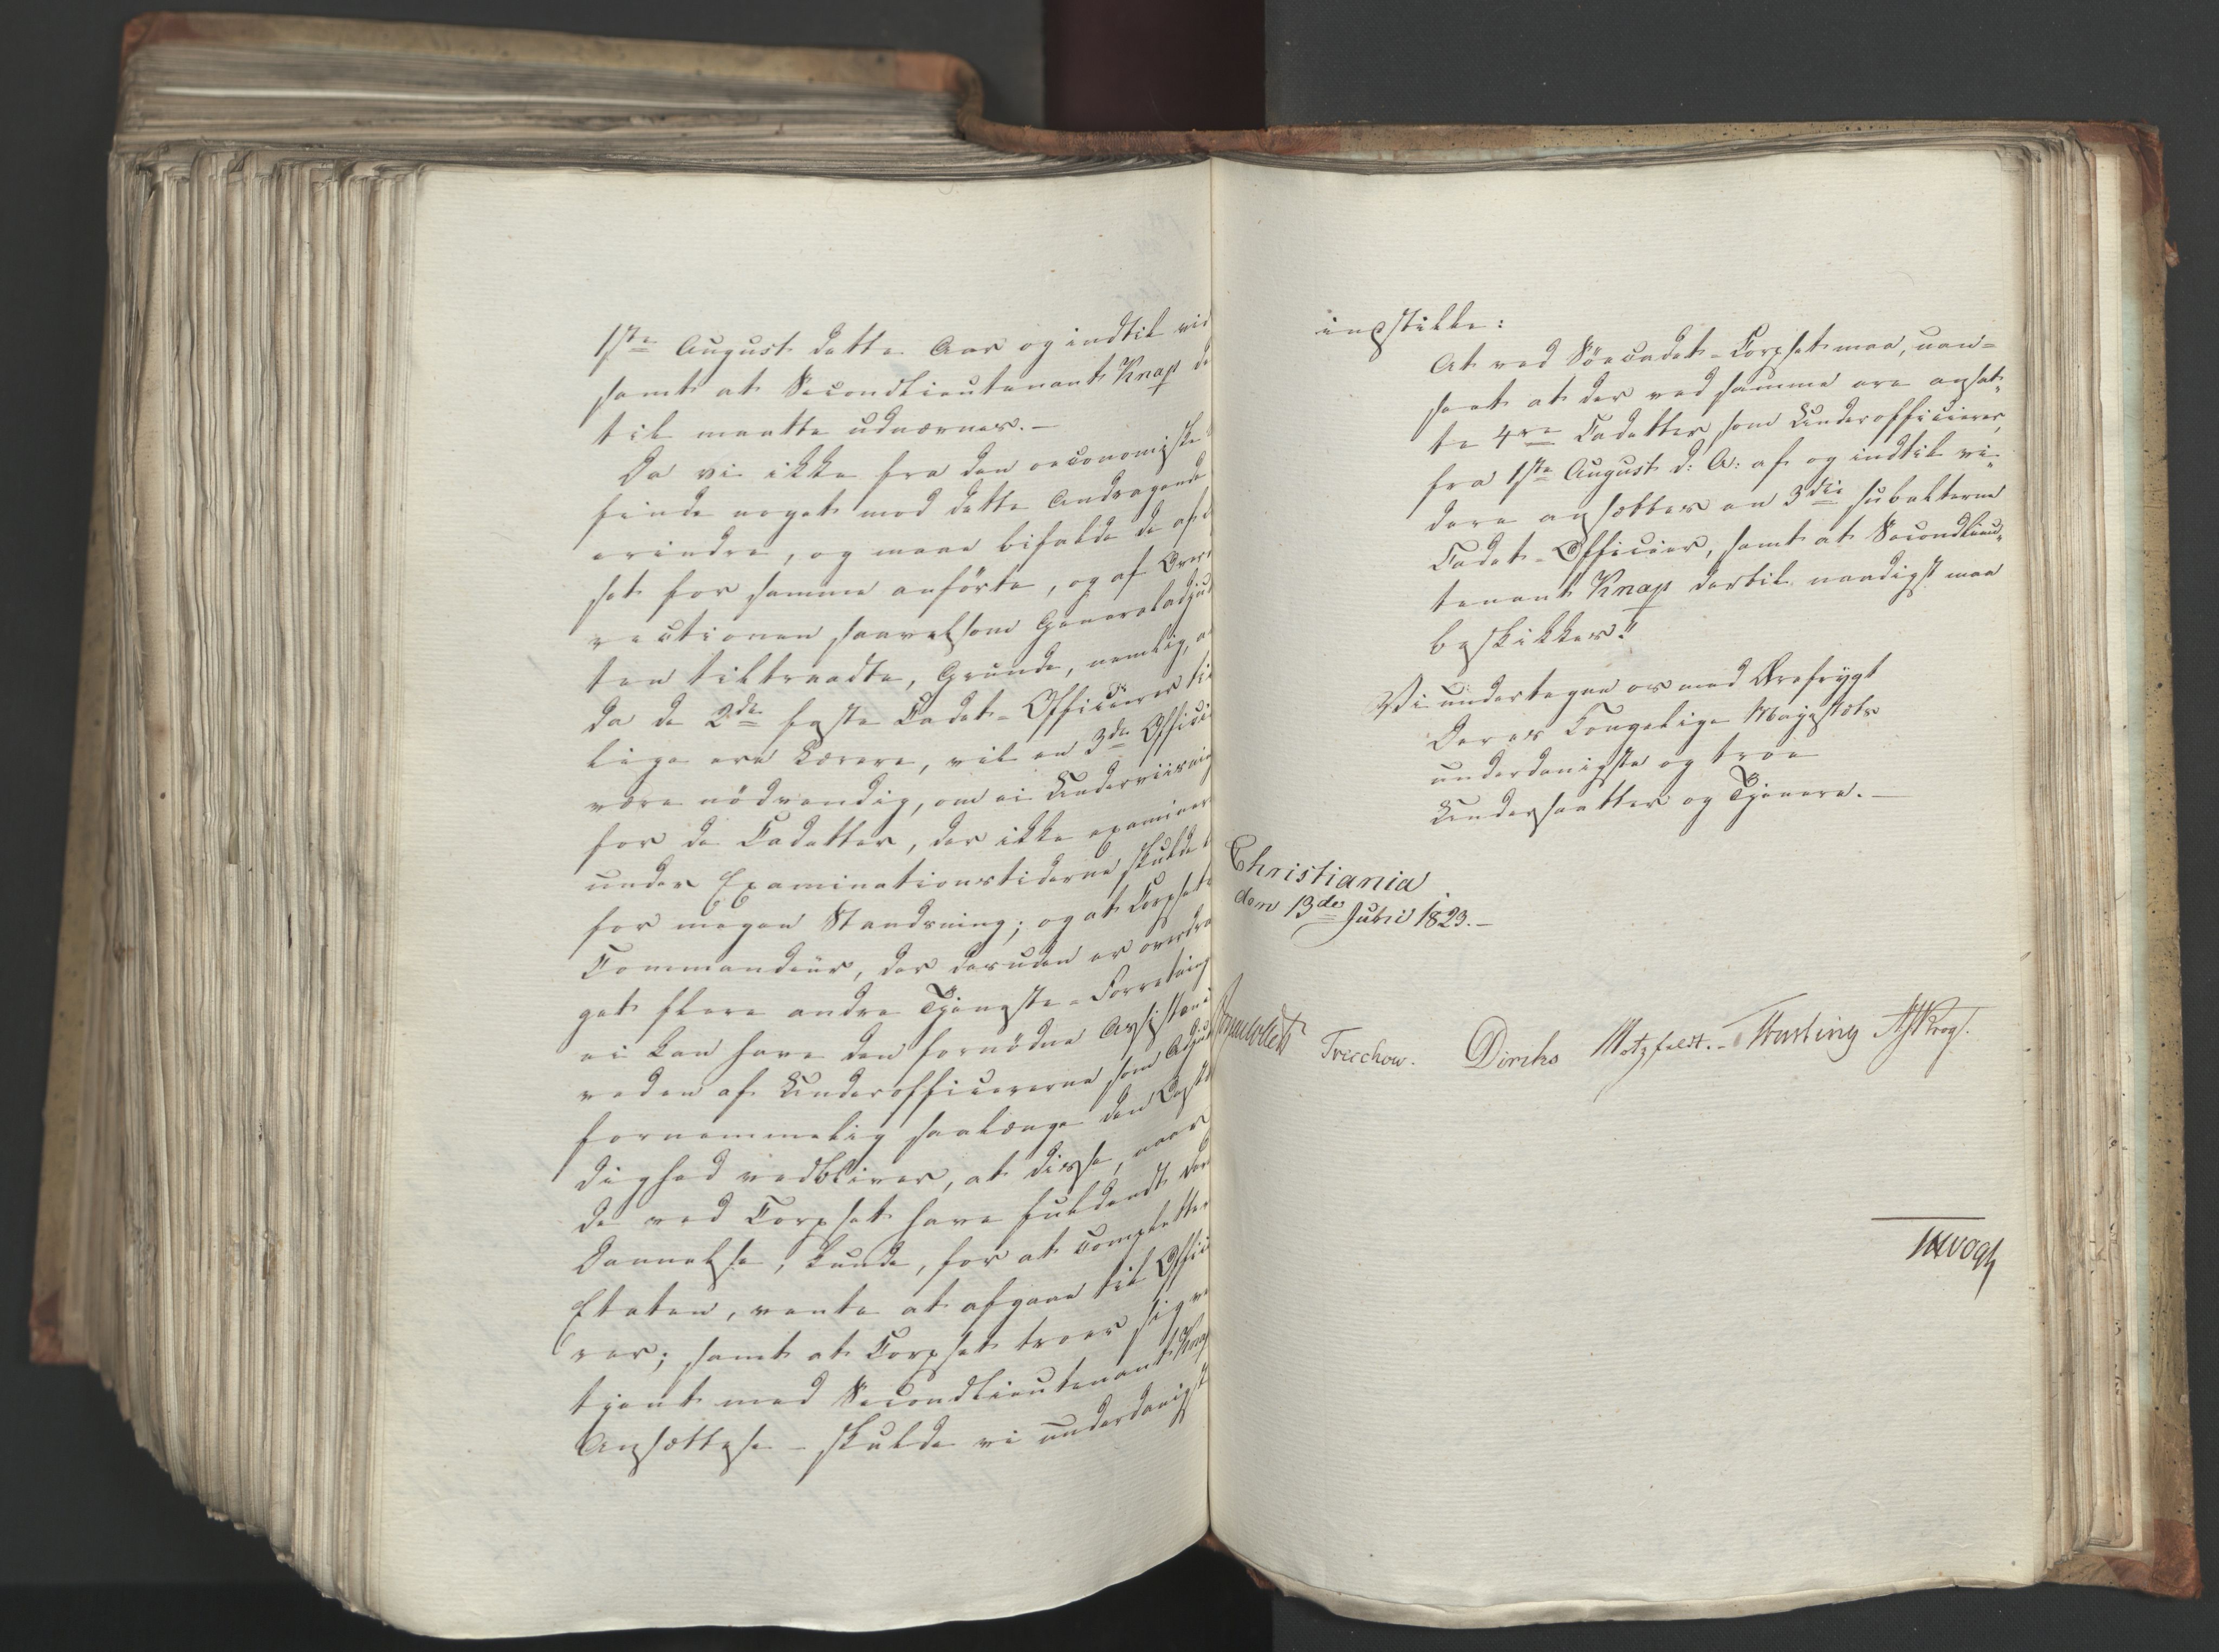 1ste August dette Aar og indtil vid
samt at Secondlieutenant Knap de
til maatte udnævnes. —
Da vi ikke fra den oeconomiske
finde noget mod dette Andragende
erindre, og maae bifalde de af
set for samme anförte, og af Over
rectionen saavelsom Generaladjut
ten tiltraadte, Grunde, nemlig, a
da de 2de faste Cadet-Officierer til
lige ere Lærere, vil en 3die Offici
være nödvendig, om ei Underviisning
for de Cadetter, der ikke examiner
under Examinationstiderne skulde
for megen Standsning; og at Corpsets
Commandeur, der desuden er overdra
get flere andre Tjeneste-Forretning
ei kan have den fornödne Assistance
ved en af Underofficererne som Adjut
fornemmelig saalænge den
dighed vedbliver, at disse, naar
de ved Corpset have fuldendt der
Dannelse, kunde, for at completter
Etaten, vente at afgaae til Offici
rer; samt at Corpset troer sig ve
tjent med Secondlieutenant Knap
Ansættelse – skulde vi underdanigst
indstille:
At ved Söecadet-Corpset maa, uan-
seet at der ved samme ere ansat-
te 4re Cadetter som Underofficierer,
fra 1ste August d: A: af og indtil vi-
dere ansættes en 3die subalterne
Cadet-Officier, samt at Secondlieu-
tenant Knap dertil naadigst maa
beskikkes."
Vi undertegne os med Ærefrygt
Deres Kongelige Mayestæts
underdanigste og troe
Undersaatter og Tjenere. —
Christiania
den 13de Juli 1823. —
Sommerhielm Treschow. Diriks Motzfeldt. – Fasting
JHVogt